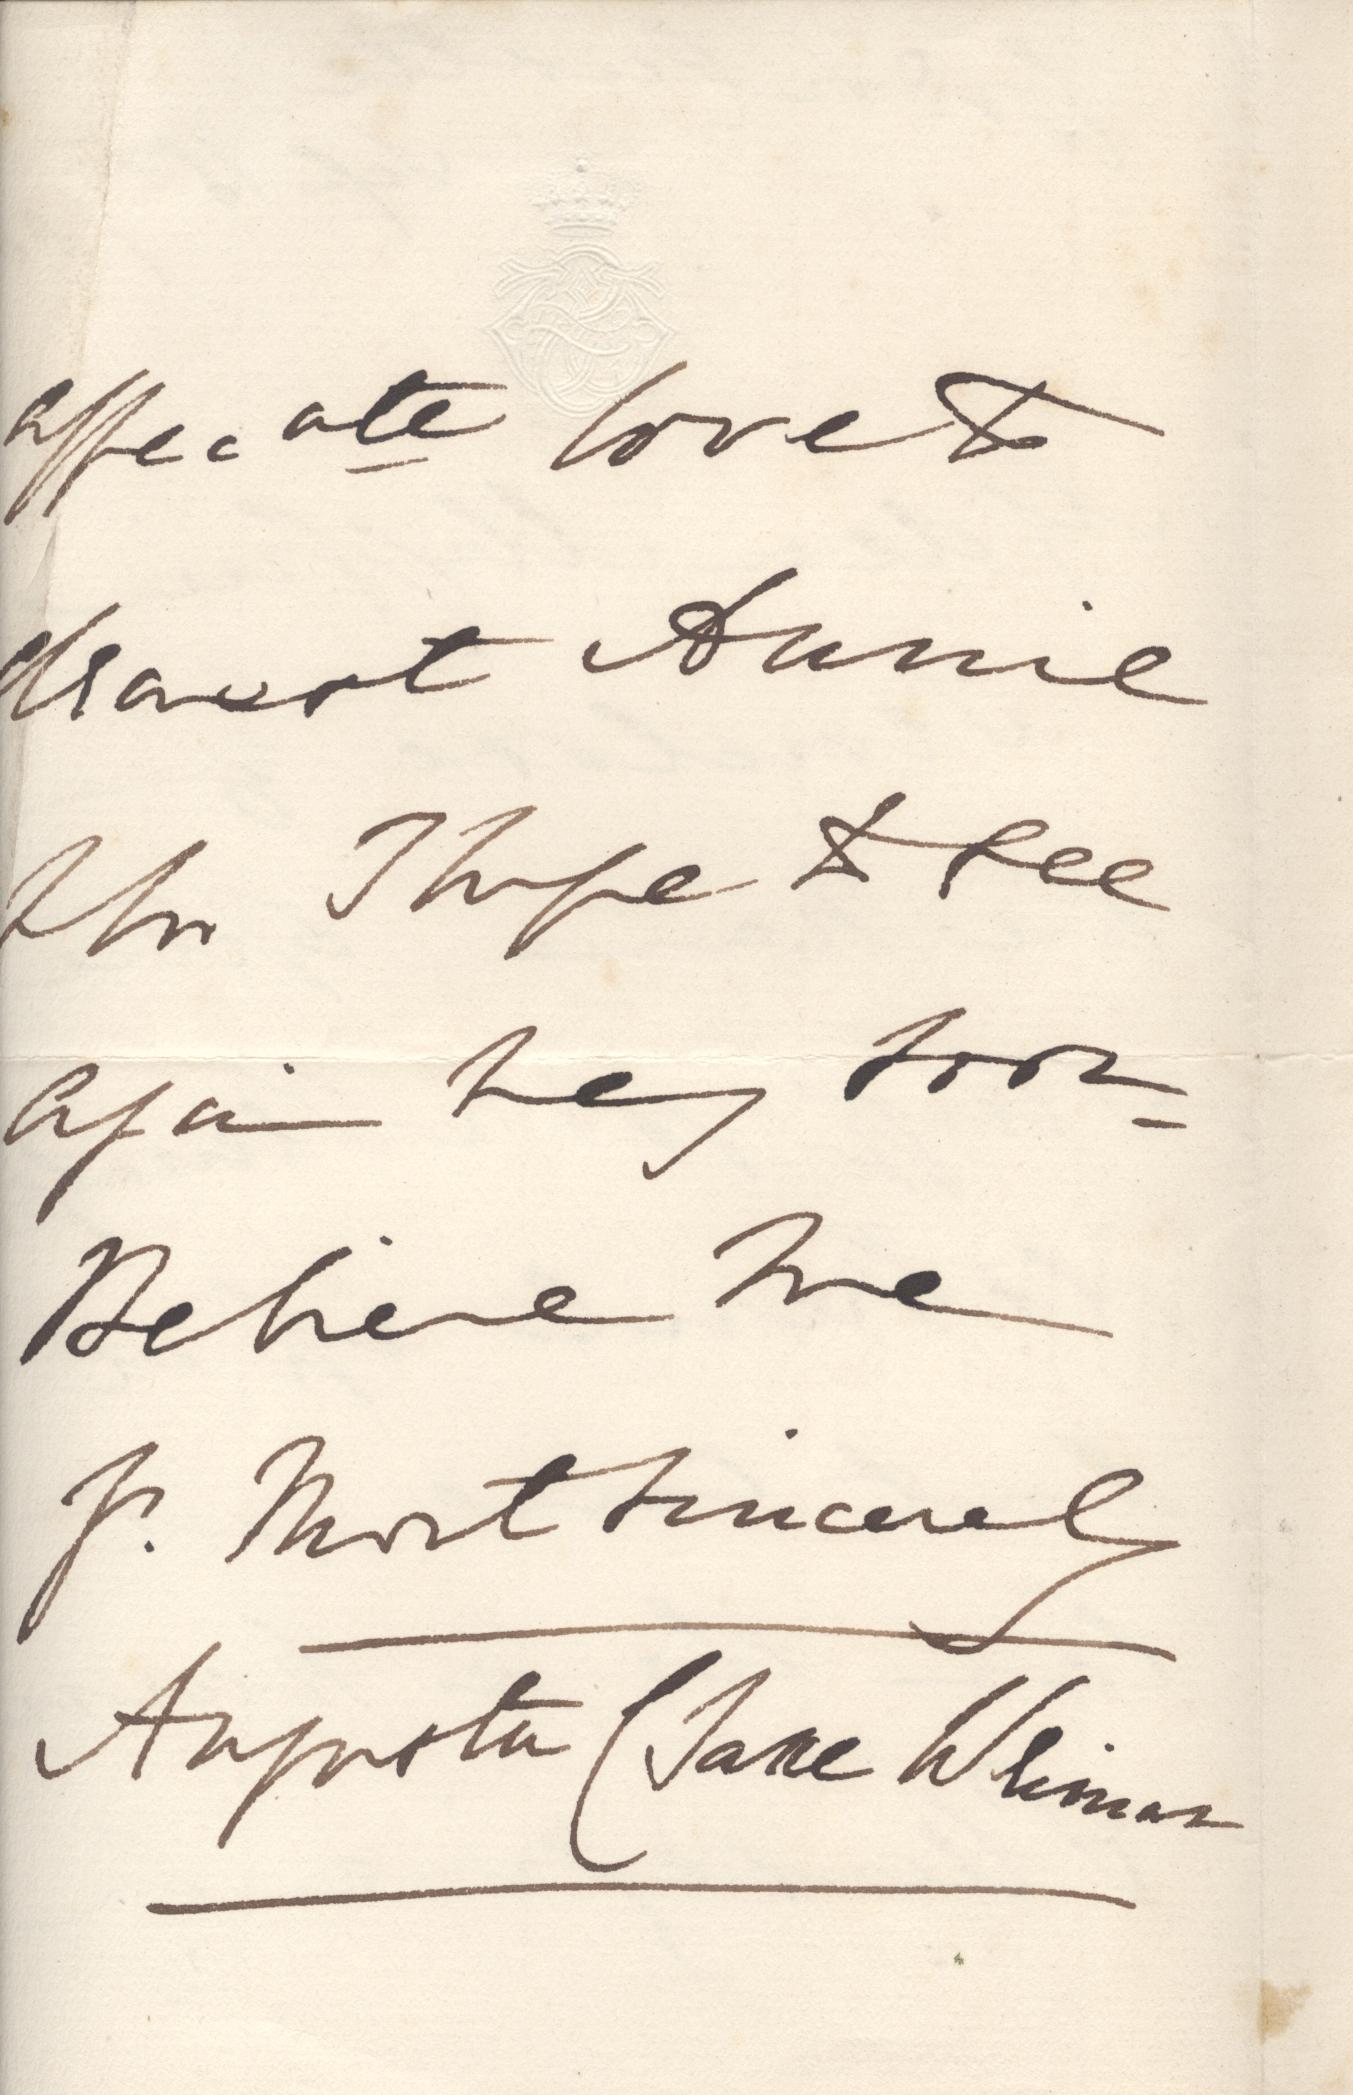 affecate love to
dearest Annie
Whom I hope to see
again very soon
Believe me
Yr. Most sincerely
Augusta (Saxe Weimar